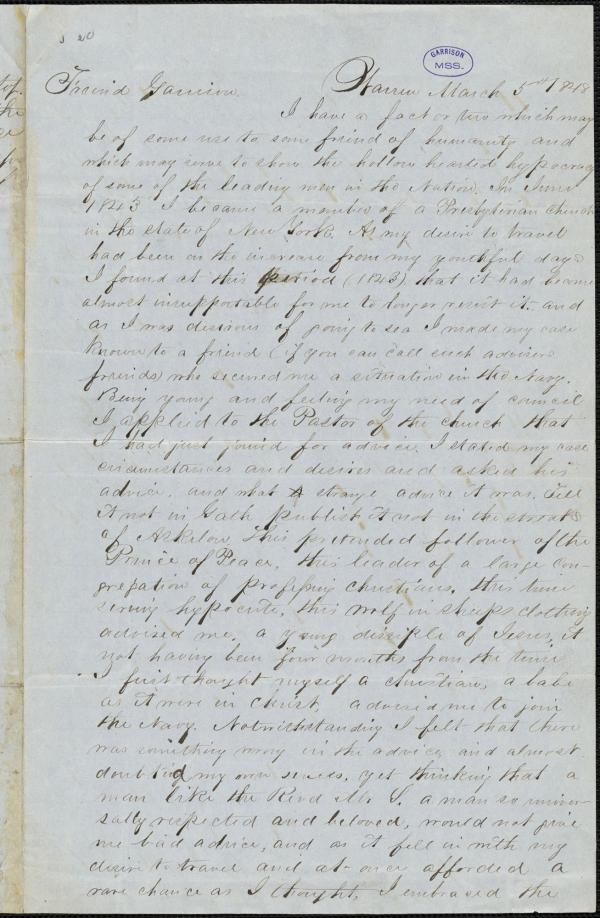 GARRISON
MSS.
Friend Garrison Warren March 5th 1848
I have a fact or two which may
be of some use to some friend of humanity and
which may serve to show the hollow hearted hypocracy
of some of the leading men in the Nation. In June
1843 I became a member of a Presbyterian Church
in the state of New York. As my desire to travel
had been on the increase from my youthful days
I found at this period (1843) that it had become
almost insupportable for me to longer resist it. and
as I was desirous of going to sea I made my case
known to a friend (if you can call such advisers
friends) who secured me a situation in the Navy.
Being young and feeling my need of council
I applied to the Pastor of the church that
I had just joined for advice. I stated my case
circumstances and desires and asked his
advice. and what strange advice it was. Tell
it not in Gath publish it not in the streets
of Askelon. This pretended follower of the
Prince of Peace. this leader of a large con-
gregation of professing christians. this time
serving hypocrite, this wolf in sheeps clothing
advised me. a young disciple of Jesus, it
not having been four months from the time
I first thought myself a christian, a babe
as it were in Christ, advised me to join
the Navy. Notwithstanding I felt that there
was something wrong in the advice, and almost
doubted my own senses. yet thinking that a
man like the Revd Mr S. a man so univer-
sally respected and beloved, would not give
me bad advice, and as it fell in with my
desire to travel and at once afforded a
rare chance as I thought, I embraced the